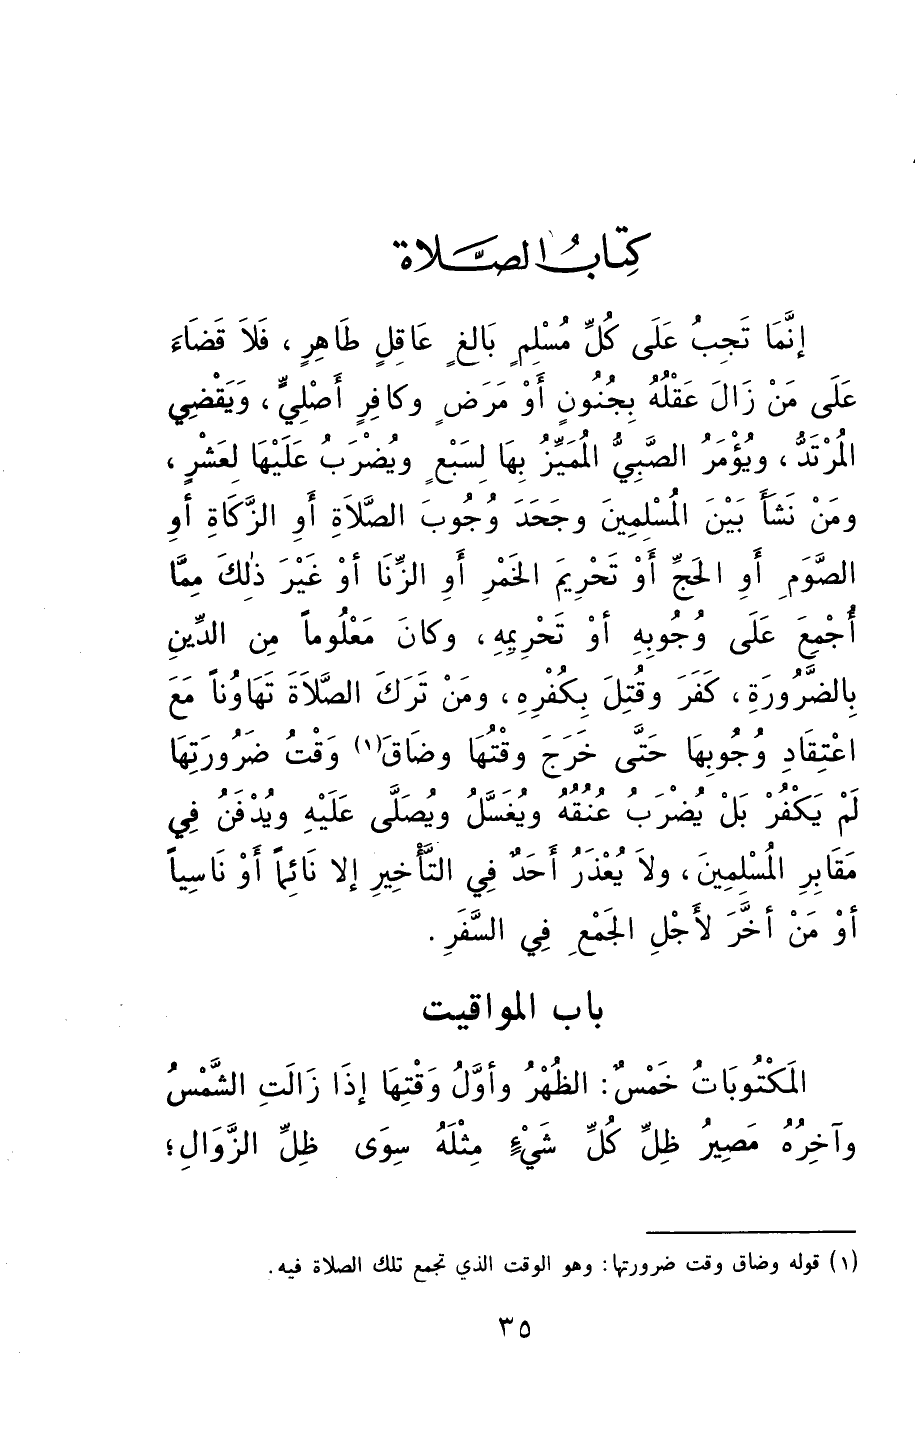 كِتَابُ الصَّلاة
إنَّمَا تَجِبُ عَلَى كُلِّ مُسْلِمٍ بَالِغٍ عَاقِلٍ طَاهِرٍ ، فَلاَ قَضَاءَ
عَلَى مَنْ زَالَ عَقْلُهُ بِجُنُونٍ أَوْ مَرَضٍ وكافِرٍ أَصْلِيٍّ، وَيَقْضِي
المُرْتَدُّ، ويُؤْمَرُ الصَّبِيُّ المُمَيِّزُ بِهَا لِسَبْعٍ ويُضْرَبُ عَلَيْهَا لِعَشْرٍ ،
ومَنْ نَشَأَ بَيْنَ المُسْلِمِينَ وجَحَدَ وُجُوبَ الصَّلَاةِ أَوِ الزَّكَاةِ أَوِ
الصَّوْمِ أَوِ الحَجِّ أَوْ تَحْرِيمَ الخَمْرِ أَوِ الزِّنَا أوْ غَيْرَ ذٰلِكَ مِمَّا
أُجْمِعَ عَلَى وُجُوبِهِ أوْ تَحْرِيمِهِ، وكانَ مَعْلُوماً مِن الدِّينِ
بِالضَّرُورَةِ، كَفَرَ وقُتِلَ بِكُفْرِهِ، ومَنْ تَرَكَ الصَّلاَةَ تَهَاوُناً مَعَ
اعْتِقَادِ وُجُوبِهَا حَتَّى خَرَجَ وقْتُهَا وضَاقَ(١) وَقْتُ ضَرُورَتِهَا
لَمْ يَكْفُرْ بَلْ يُضْرَبُ عُنُقُهُ ويُغَسَّلُ ويُصَلَّى عَلَيْهِ ويُدْفَنُ فِي
مَقَابِرِ المُسْلِمِينَ، ولاَ يُعْذَرُ أَحَدٌ فِي التَّأْخِيرِ إلا نَائِماً أَوْ نَاسِياً
أوْ مَنْ أخَّرَ لأَجْلِ الجَمْعِ فِي السَّفَرِ .
باب المواقيت
المَكْتُوبَاتُ خَمْسٌ: الظُهْرُ وأوَّلُ وَقْتِهَا إذَا زَالَتِ الشَّمْسُ
وآخِرُهُ مَصِيرُ ظِلِّ كُلِّ شَيْءٍ مِثْلَهُ سِوَى ظِلِّ الزَّوَالِ؛
(١) قوله وضاق وقت ضرورتها: وهو الوقت الذي تجمع تلك الصلاة فيه.
٣٥